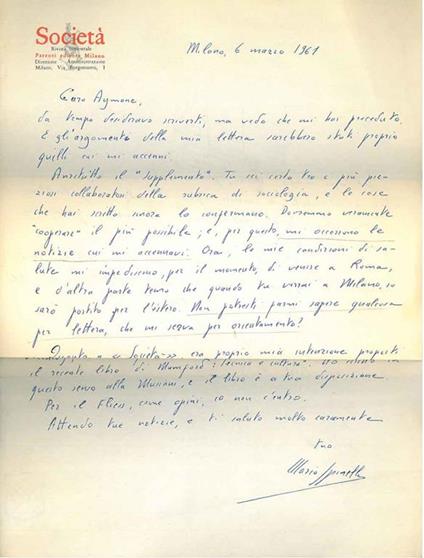 Società
Rivista bimestrale
Parenti editore Milano
Direzione Amministrazione
Milano, Via Borgonuovo, 1
Milano, 6 marzo 1961
Caro Aymone,
da tempo desideravo scriverti, ma vedo che mi hai preceduto.
E gli argomenti della mia lettera sarebbero stati proprio
quelli cui mi accenni.
Anzitutto il "supplemento". Tu sei certo tra i più pre-
ziosi collaboratori della rubrica di sociologia, e le cose
che hai scritto sinora lo confermano. Dovremmo veramente
"cooperare" il più possibile; e, per questo, mi occorrono le
notizie cui mi accennavi. Ora, le mie condizioni di sa-
lute mi impediscono, per il momento, di venire a Roma,
e d'altra parte temo che quando tu verrai a Milano, io
sarò partito per l'estero. Non potresti farmi sapere qualcosa
per lettera, che mi serva per orientamento?
Quanto a «Società», era proprio mia intenzione proporti
il recente libro di Mumford: Tecnica e cultura.
questo senso alla Musiani, e il libro è a tua disposizione.
Per il Fliess, come opini, io non c'entro.
Attendo tue notizie, e ti saluto molto caramente
tuo
Mario Spinella